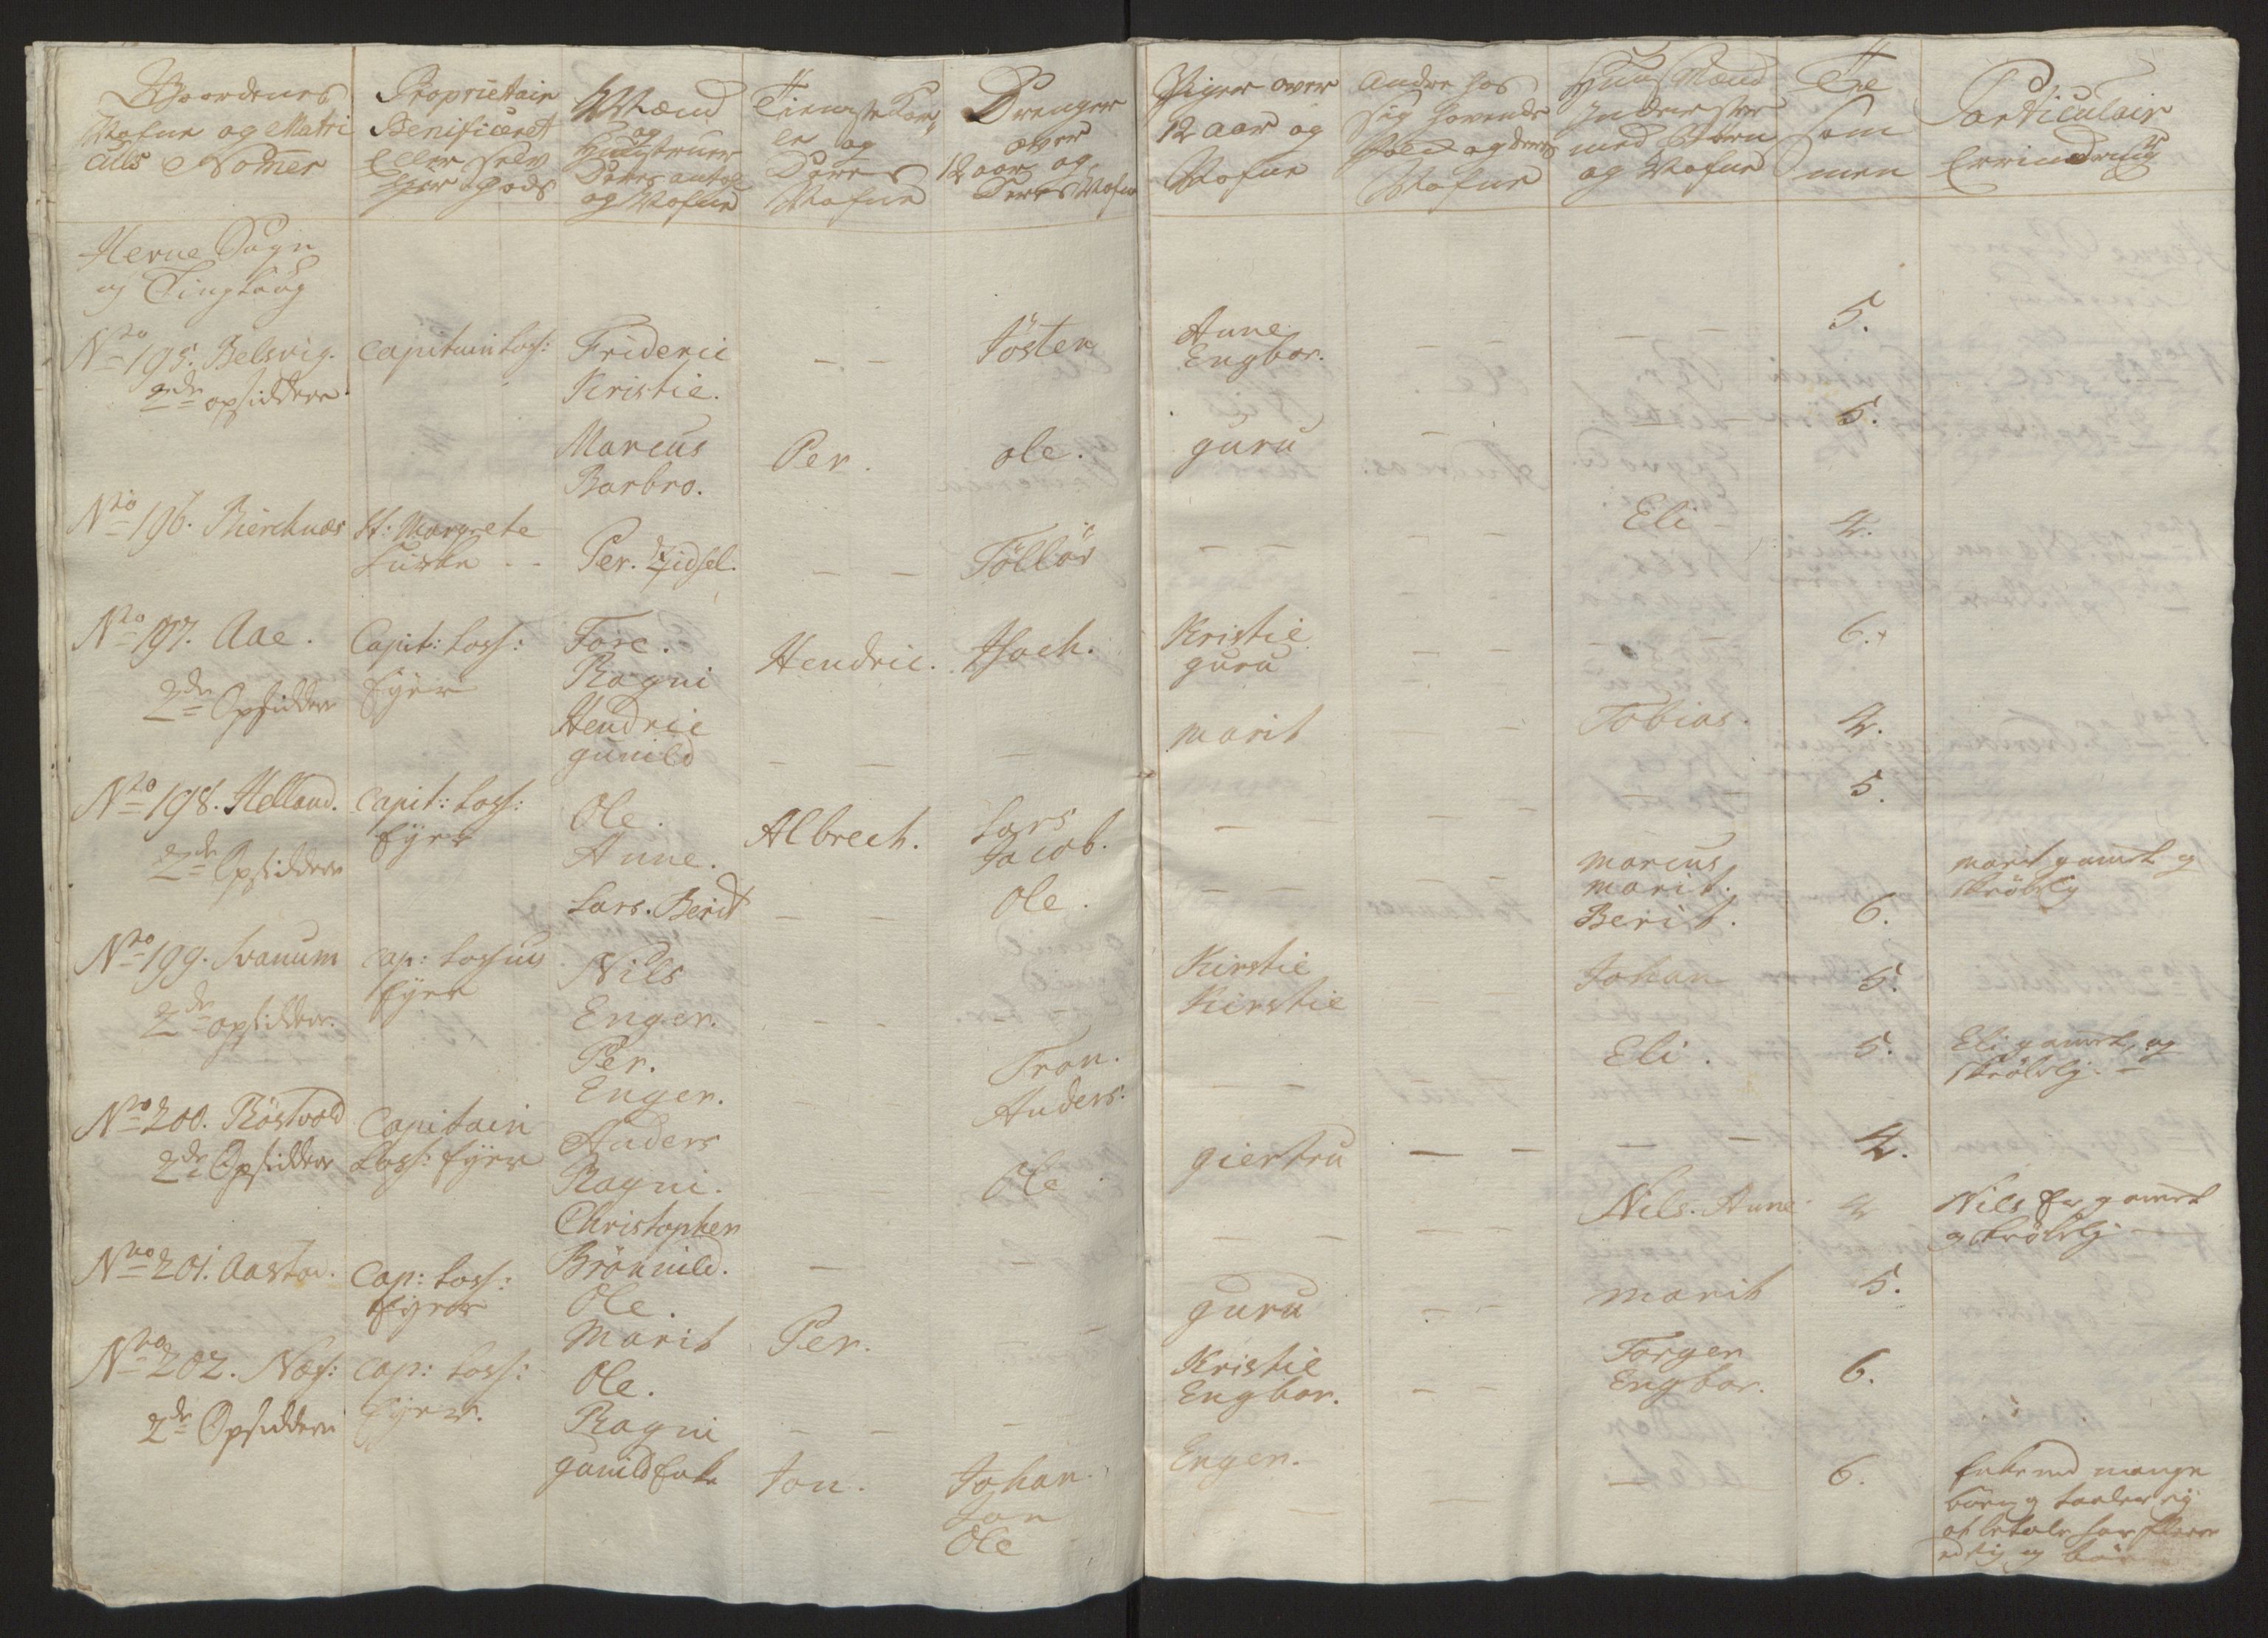 Gaardenes
Nafne og Matri
culs Nomer
Proprietair
Benificeret
eller selv
Ejer gods
Mænd
og
Hustruer
Deres antal
og Nafne
Tieneste Kar
le og
Deres
Nafne
Drenger
over
12 aar og
Deres Nafne
Piger over
12 aar og
Nafne
Andre hos
sig havende
og deres
Nafne
Huus Mænd
Inderster
med Børn
og Nafne
Til
sam
men
Particulair
Errindring
Hevne Sogn
og Tinglaug
No 195. Belsvig.
2de opsiddere
Capitain Loss:
Frideric
Kristie.
– –
Jösten
Anne
Engbor.
– –
– –
5.
Marcus
Barbro.
Per.
ole.
guru
–
5.
No 196. Bierchnæs
H: Margrete
Per. Zidsel.
– –
Töllöv
– –
– –
Eli
4.
No 197. Aae.
2de Opsiddere
Capit: Loss:
Ejer
Tore.
Ragni
Hendric.
Isach.
Kristie
guru
– –
–
6.
Hendric
gunild
– –
–
marit
– –
Tobias.
4.
No 198. Helland.
2de Opsiddere
Capit: Loss:
Ejer
Ole.
Anne.
Albrech.
Lars
Jacob.
–
– –
–
5.
Lars. Berit
– –
Ole.
– –
–
marcus
marit.
Berit.
6.
marcus gamel og
skröbelig
No 199. Svanum
2de opsiddere.
Cap: Lossius
Ejer
Nils
Enger.
– –
–
Kirstie
Kirstie
–
Johan
5.
Per.
Enger.
Tron.
Anders.
– –
Eli.
5.
Eli gamel og
skröbelig. –
No 200. Röstvold
2de Opsiddere
Capitain
Loss: Ejer
Anders
Ragni.
– –
Ole
giertru
– –
– –
4.
Christopher
Brönnild.
–
–
– –
–
Nils. Anne
4
Nils er gamel
og skröbelig
No 201. Aastad.
Cap: Loss:
Ejer
Ole.
Marit
Per.
–
guru
– –
marit
5.
No 202. Næs:
2de Opsiddere
Cap: Loss:
Ejer.
Ole.
Ragni
– –
–
Kristie
Engbor.
– –
Torger
Engbor.
6.
gunild Enke
Jon.
Johan.
Jon
Ole
Enger.
–
–
–
6.
Enke med mange
börn og